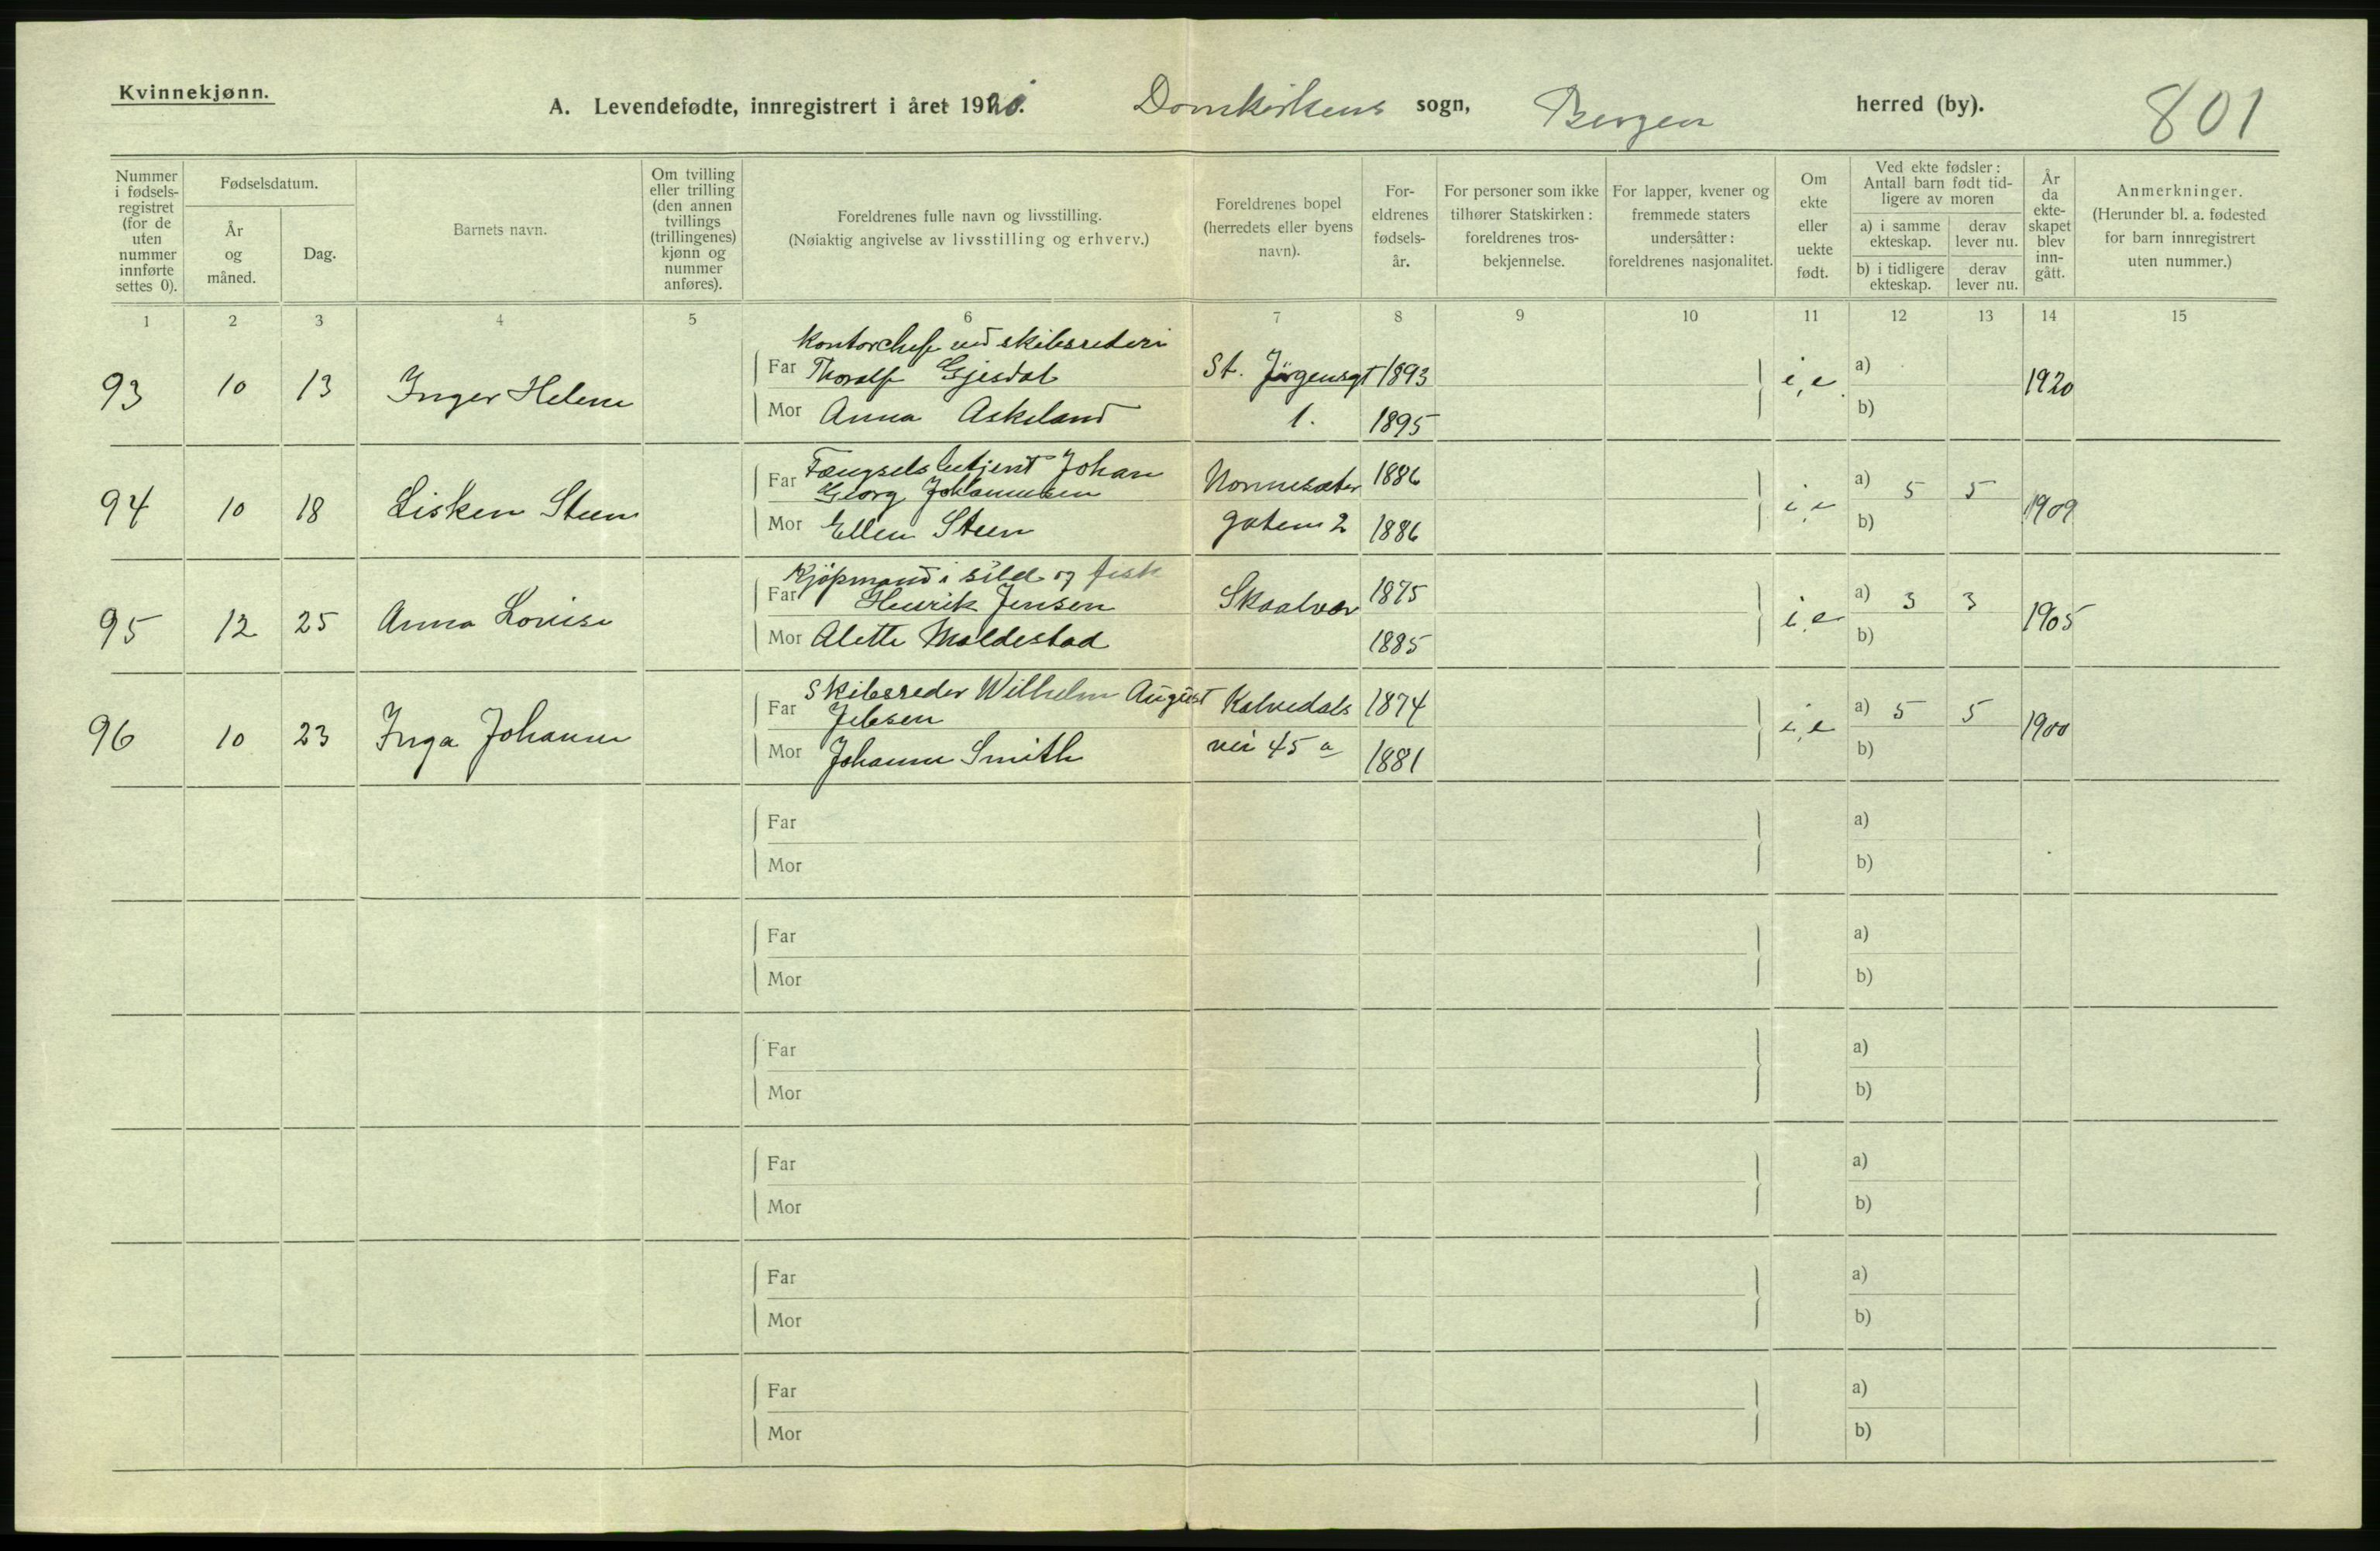 Kvinnekjønn.
A. Levendefødte, innregistrert i året 1920. Domkirkens sogn, Bergen herred (by). 801
Nummer i fødsels-registret (for de uten nummer innførte settes 0).
Fødselsdatum.
År og måned.
Dag.
Barnets navn.
Om tvilling eller trilling (den annen tvillings (trillingenes) kjønn og nummer anføres).
Foreldrenes fulle navn og livsstilling.
(Nøiaktig angivelse av livsstilling og erhverv.)
Foreldrenes bopel (herredets eller byens navn).
For-eldrenes fødsels-år.
For personer som ikke tilhører Statskirken: foreldrenes tros-bekjennelse.
For lapper, kvener og fremmede staters undersåtter: foreldrenes nasjonalitet.
Om ekte eller uekte født.
Ved ekte fødsler: Antall barn født tid-ligere av moren
a) i samme ekteskap.
derav lever nu.
b) i tidligere ekteskap.
derav lever nu.
År da ekte-skapet blev inn-gått.
Anmerkninger.
(Herunder bl. a. fødested for barn innregistrert uten nummer.)
1 2 3 4 5 6 7 8 9 10 11 12 13 14 15
Kontorchef ved skibsrederi
93 10 13 Inger Helene Far Thoralf Gjesdal St. Jørgensgt 1893 i, e. a) 1920
Mor Anna Askeland 1. 1895 b)
Fængselsbetjent Johan
94 10 18 Lisken Steen Far Georg Johannesen Nonnesæter 1886 i, e a) 5 5 1909
Mor Ellen Steen gaten 2 1886 b)
Kjøpmand i sild og fisk
95 12 25 Anna Louise Far Henrik Jensen Skaalvær 1875 i, e a) 3 3 1905
Mor Alette Moldestad 1885 b)
Skibsreder Wilhelm August
96 10 23 Inga Johanne Far Jebsen Kalvedals 1874 i, e a) 5 5 1900
Mor Johanne Smith vei 45 a 1881 b)
Far a)
Mor b)
Far a)
Mor b)
Far a)
Mor b)
Far a)
Mor b)
Far a)
Mor b)
Far a)
Mor b)